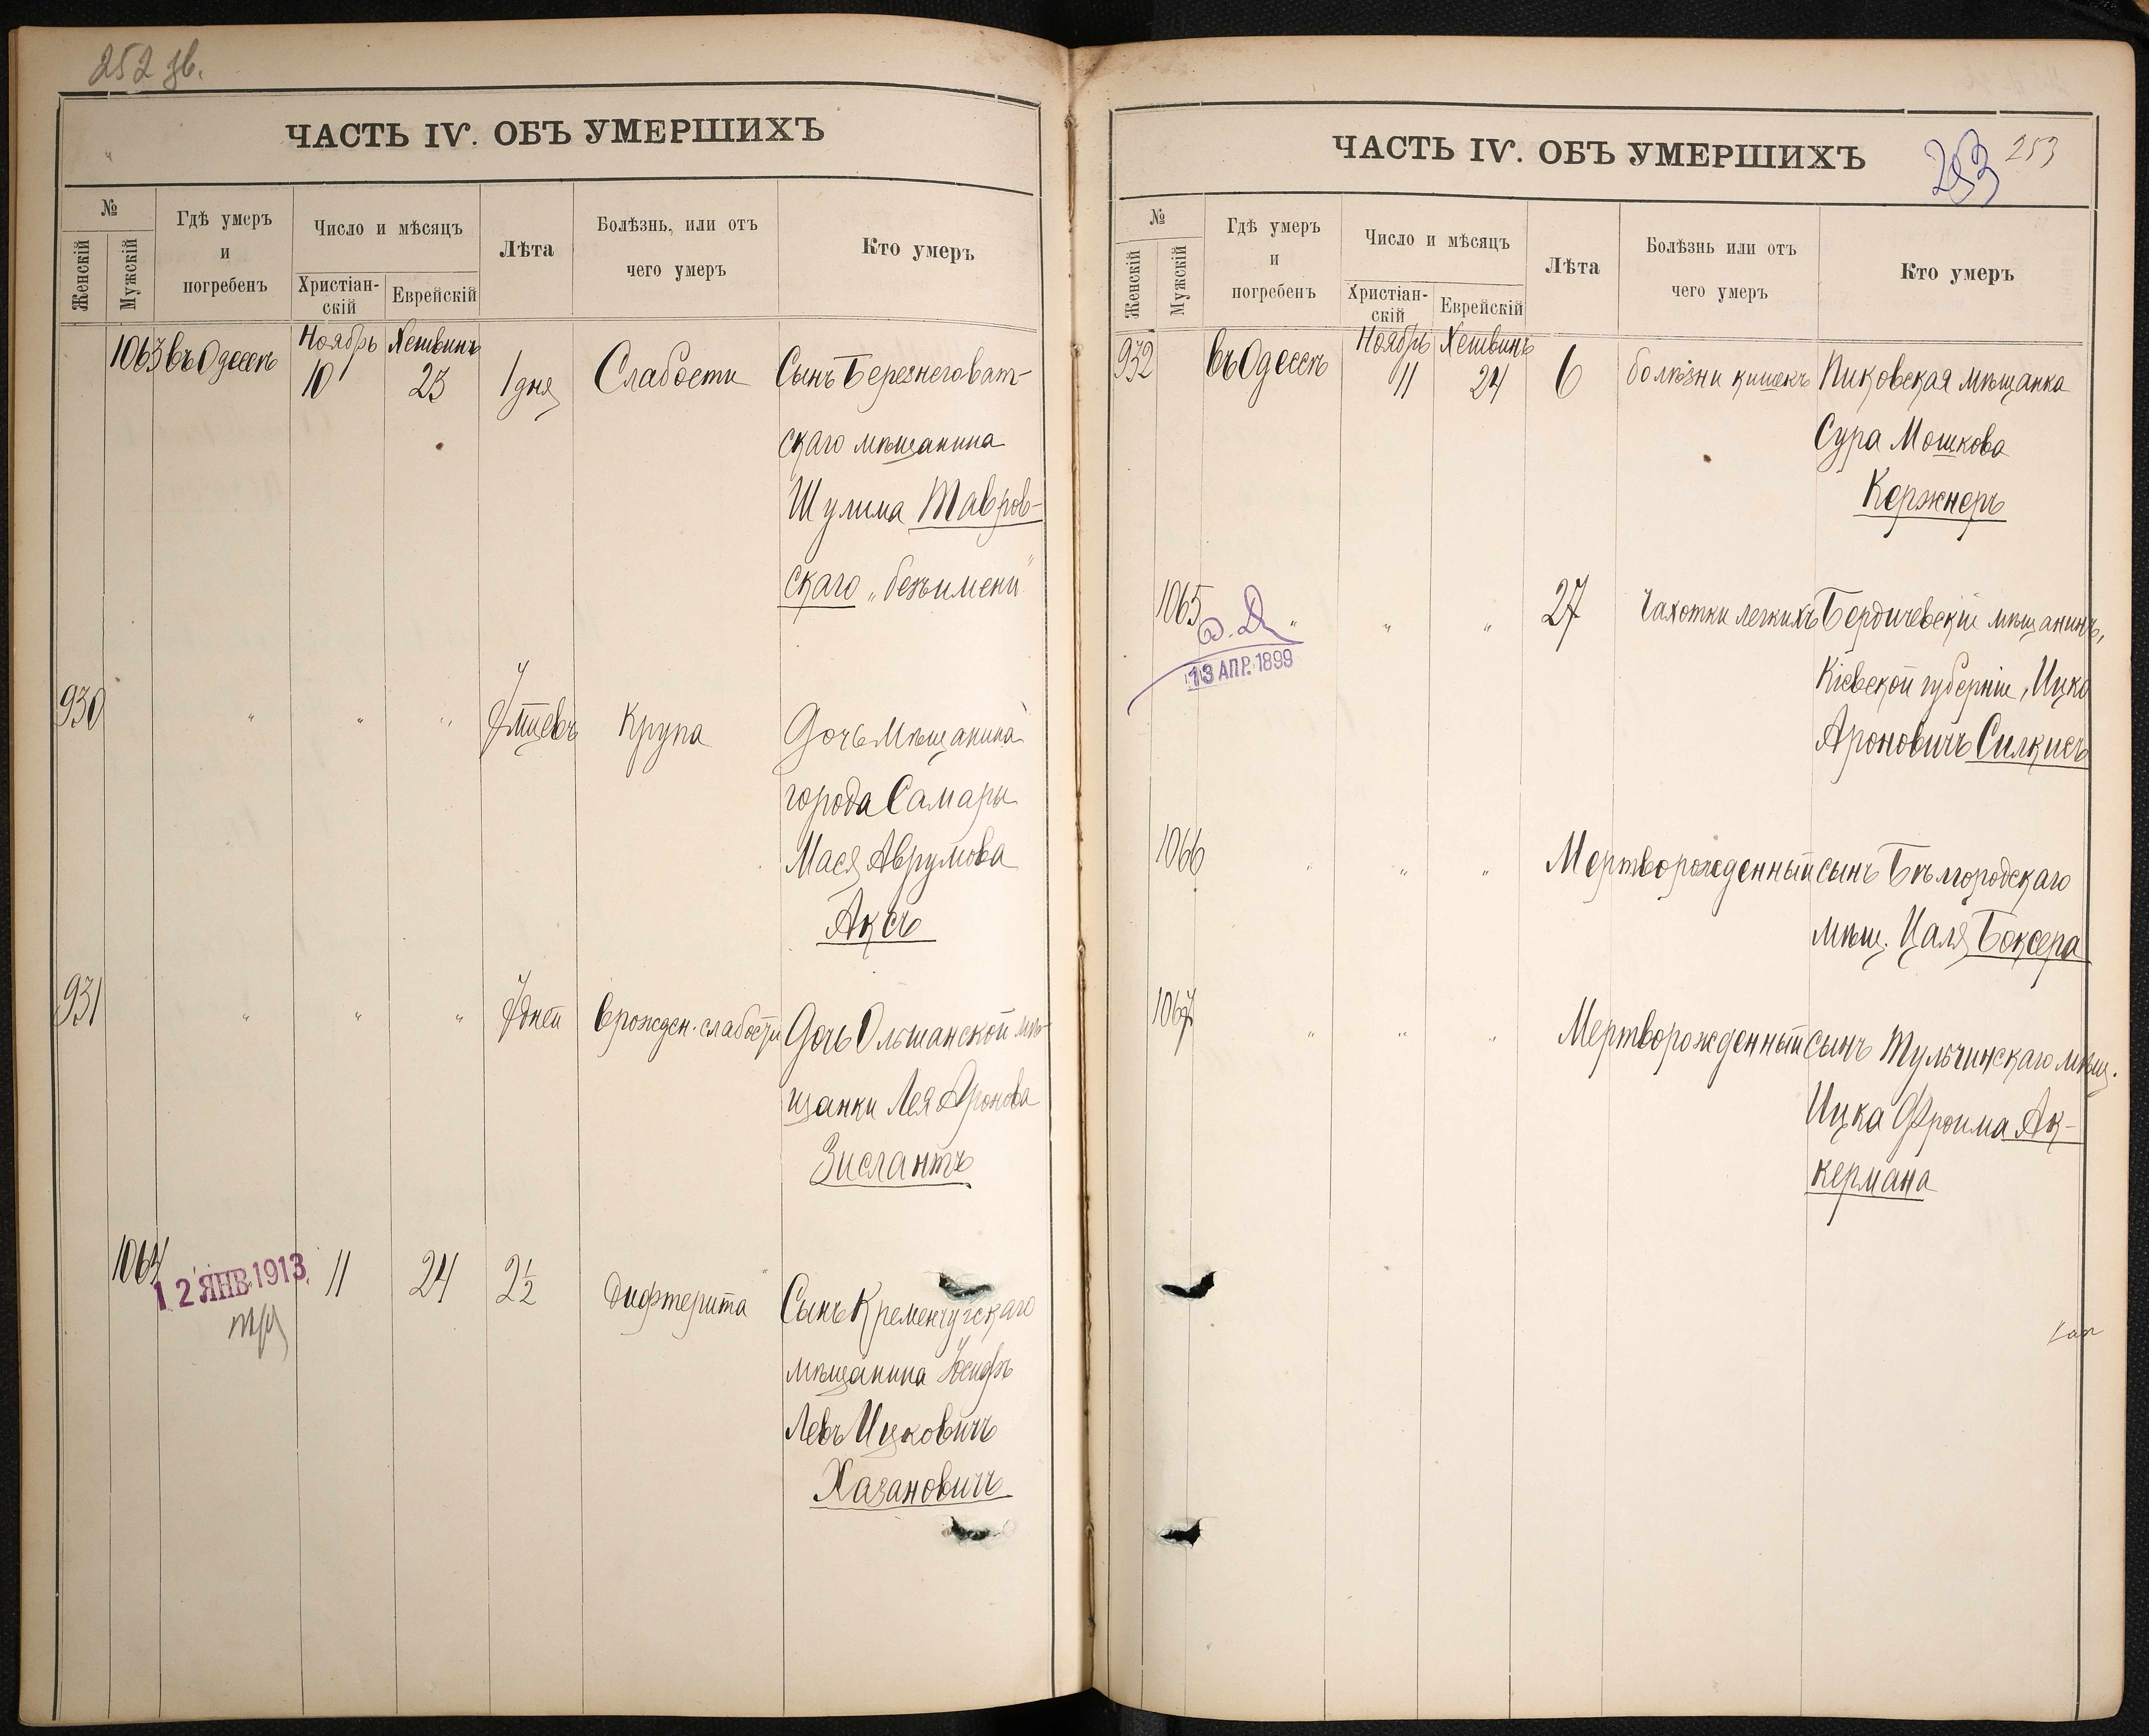 252 зв.
ЧАСТЬ IV. ОБЪ УМЕРШИХЪ
№
Женскій
Мужскій
Гдѣ умеръ
и
погребенъ
Число и мѣсяцъ
Христіан-
скій
Еврейскій
Лѣта
Болѣзнь, или отъ
чего умеръ
Кто умеръ
Ноябрь Хешвинъ
1063 въ Одессѣ 10 23 1 дня Слабости Сынъ Березнеговат-
скаго мѣщанина
Шулима Тавров-
скаго „безъимени"
930 " " " 7 мцевъ Крупа Дочь мѣщанина
города Самары
Мася Аврумова
Аксъ
931 " " " 7 дней Врожден. слабости Дочь Ольшанской мѣ-
щанки Лея Аронова
Зислантъ
1064 11 24 2½ Дифтерита Сынъ Кременчугскаго
12 ЯНВ 1913
мѣщанина Іосифъ
Левъ Ицковичъ
Хазановичъ
ЧАСТЬ IV. ОБЪ УМЕРШИХЪ
253 253
№
Женскій
Мужскій
Гдѣ умеръ
и
погребенъ
Число и мѣсяцъ
Христіан-
скій
Еврейскій
Лѣта
Болѣзнь или отъ
чего умеръ
Кто умеръ
Ноябрь Хешвинъ
932 въ Одессѣ 11 24 6 болѣзни кишекъ Пиковская мѣщанка
Сура Мошкова
Кержнеръ
1065 " " " 27 Чахотки легкихъ Бердичевскій мѣщанинъ,
13 АПР. 1899
Кіевской губерніи, Ицко
Ароновичъ Силкисъ
1066 " " " Мертворожденный сынъ Бѣлгородскаго
мѣщ. Цаля Боксера
1067 " " " Мертворожденный сынъ Тульчинскаго мѣщ.
Ицка Фроима Ак-
кермана